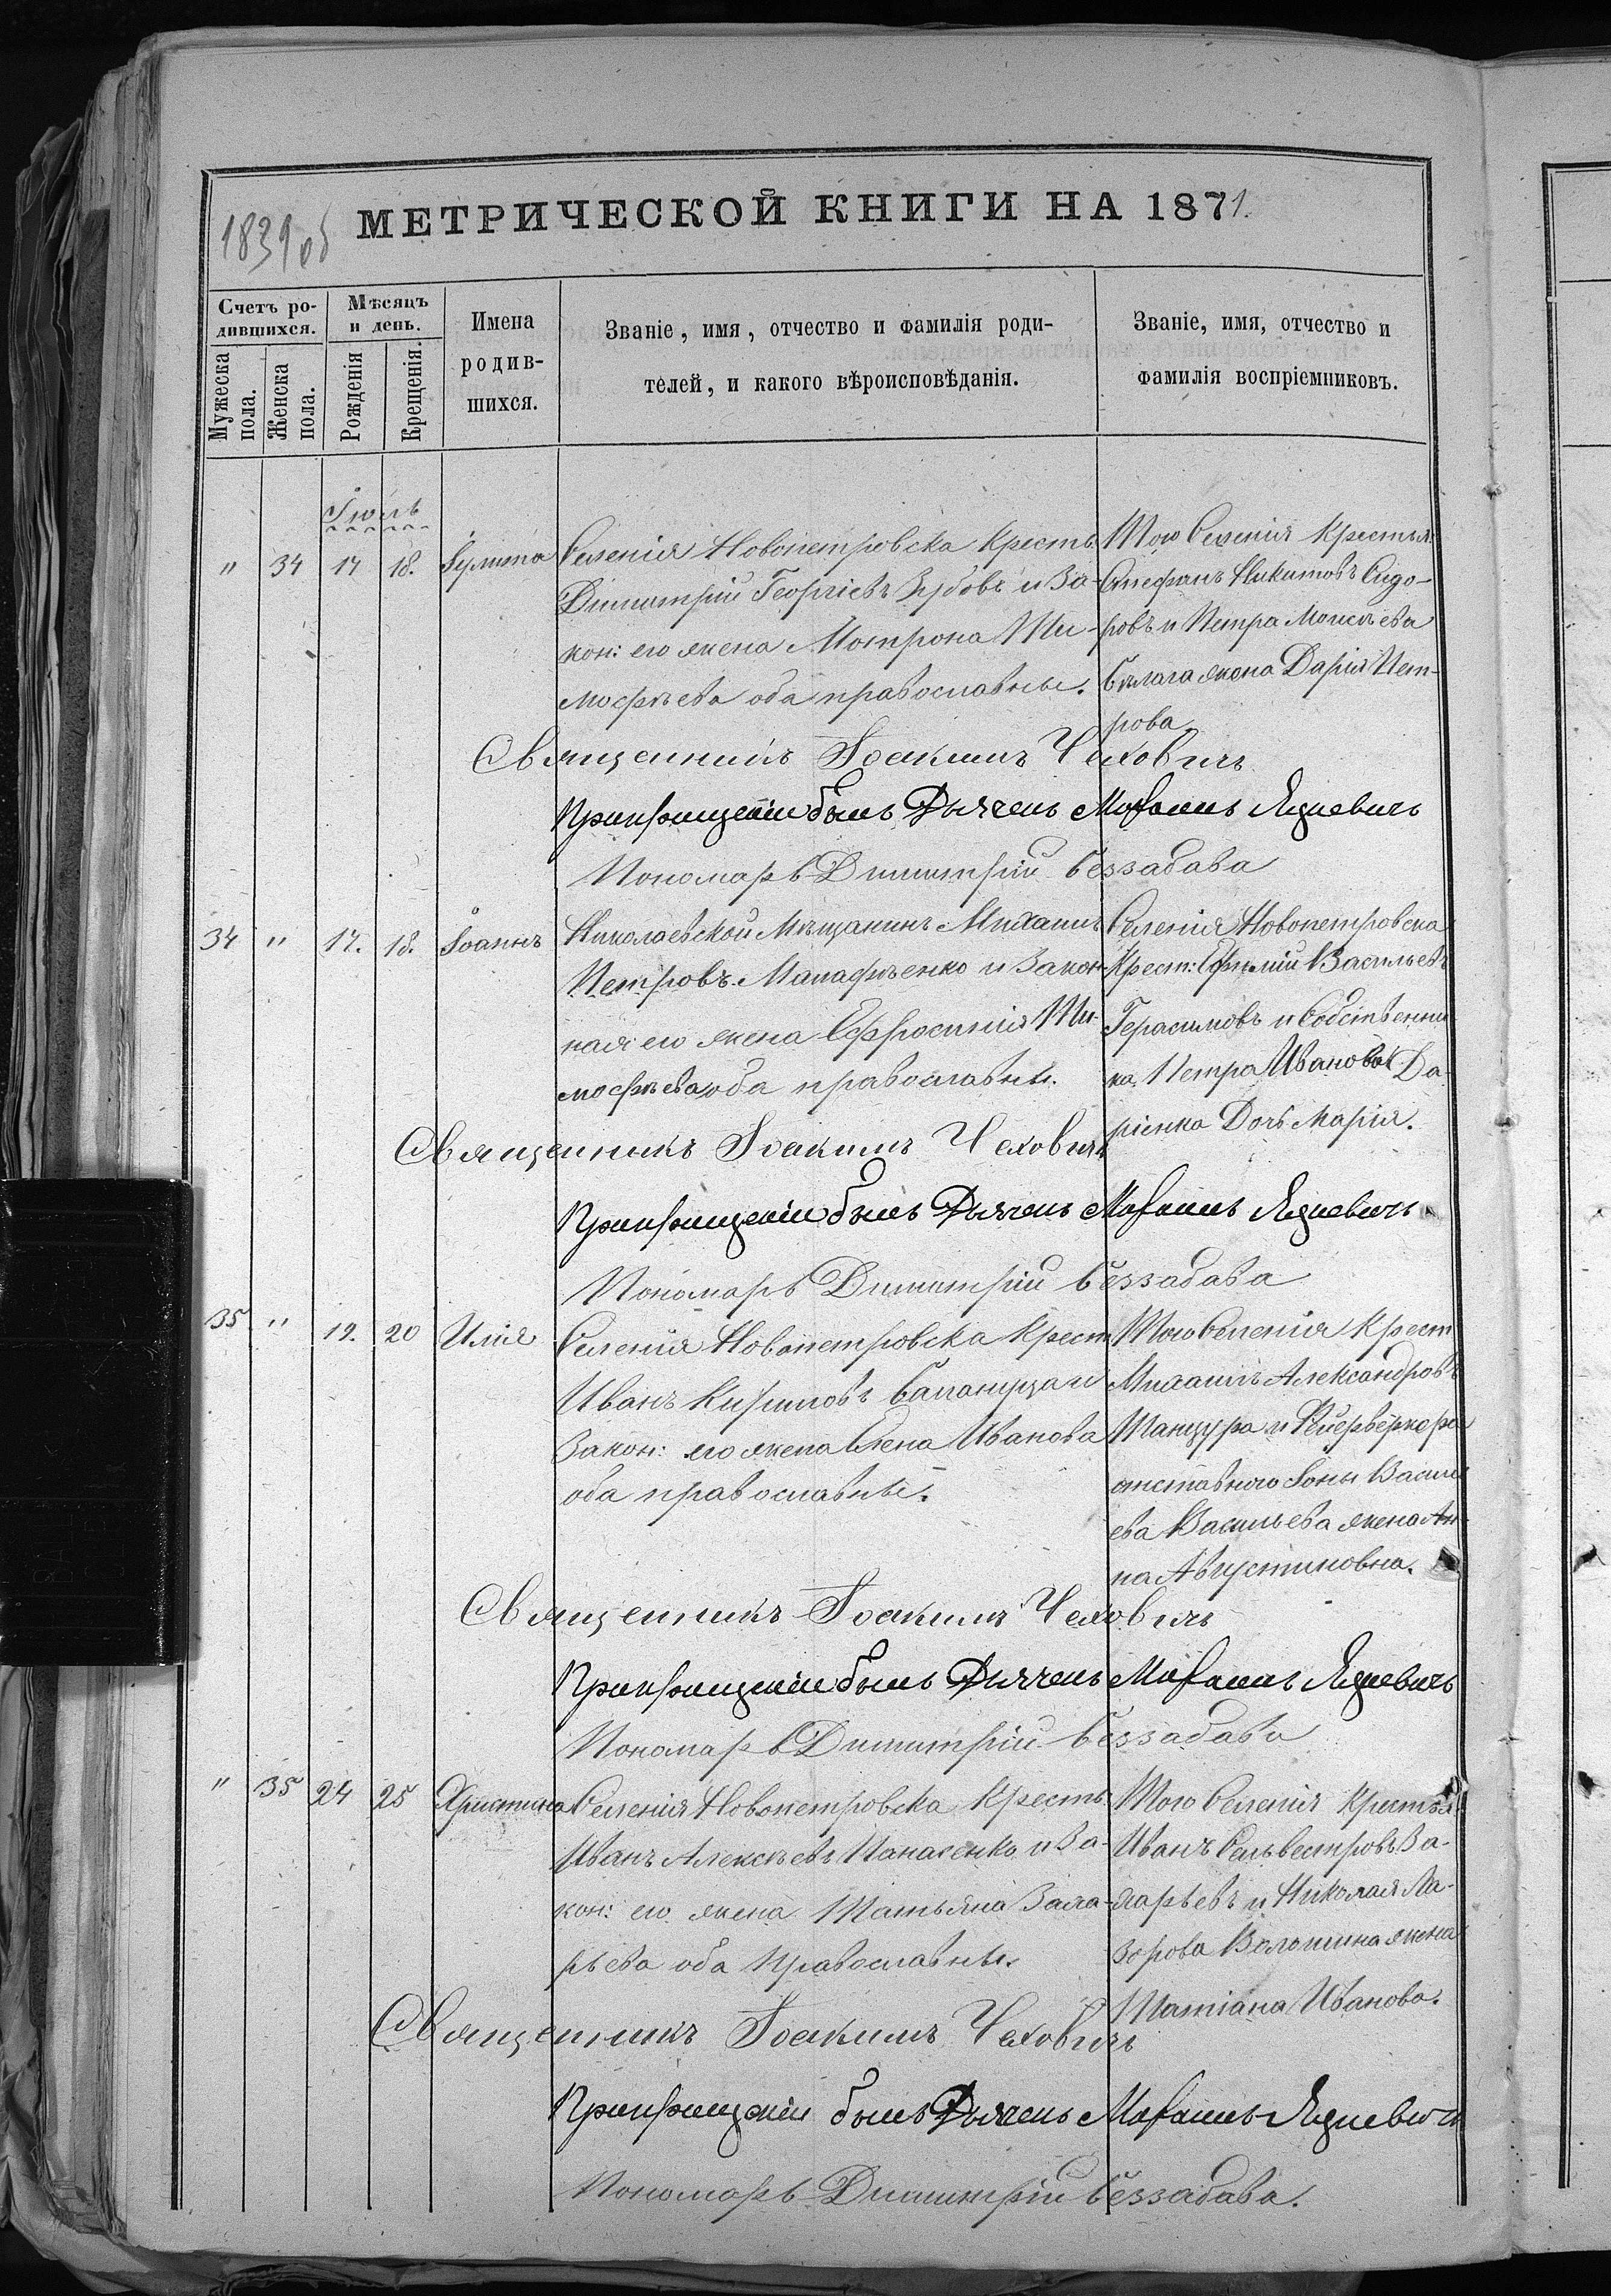 1839об
МЕТРИЧЕСКОЙ КНИГИ НА 1871.
Счетъ ро-
дившихся.
Мѣсяцъ
и день.
Мужеска
пола.
Женска
пола.
Рожденія
Крещенія.
Имена
родив-
шихся.
Званіе, имя, отчество и фамилія роди-
телей, и какого вѣроисповѣданія.
Званіе, имя, отчество и
фамилія воспріемниковъ.
Іюль
" 34 17 18. Іулита
Селенія Новопетровска Крестъ.
Димитрій Георгіевъ Зубовъ и За-
кон: его жена Мотрона Ти-
мофѣева оба православные.
Того Селенія Крестья
Стефанъ Никитовъ Сидо-
ровъ и Петра Моисѣева
Бѣлага жена Дарія Пет-
рова
Священникъ Іоакимъ Чехович
При крещеніи былъ Дьячекъ
Пономарь Димитрій Беззабава
34 " 17. 18. Іоаннъ
Николаевской Мѣщанинъ Михаилъ
Петровъ Малафѣенко и Закон-
ная его жена Ефросинія Ти-
мофѣева оба православны.
Селенія Новопетровска
Крест: Ефимій Васильевъ
Герасимовъ и Собственни
ка Петра Иванова Да-
ріенка Дочь Марія.
Священникъ Іоакимъ Чехович
При крещеніи былъ Дьячекъ
Пономарь Димитрій Беззабава
35 " 19. 20 Илія
Селенія Новопетровска Крест
Иванъ Кириловъ и
Закон: его жена Елена Иванова
оба православные.
Того Селенія Крест
Михаилъ Александровъ
и Фейерверкера
отставного Васил
ева Васильева жена Ан-
на Августиновна.
Священникъ Іоакимъ Чехович
При крещеніи былъ Дьячекъ
Пономарь Димитрій Беззабава
" 35 24 25 Христина
Селенія Новопетровска Крестъ
Иванъ Алексѣевъ Панасенко и За-
кон: его жена Татьяна Заха-
рьева оба Православны.
Того Селенія Крестья
Иванъ Сельвестровъ За-
харьевъ и Николая Ла-
зорова Волошина жена
Татіана Иванова.
Священникъ Іоакимъ Чехович
При крещеніи былъ Дьячекъ
Пономарь Димитрій Беззабава.